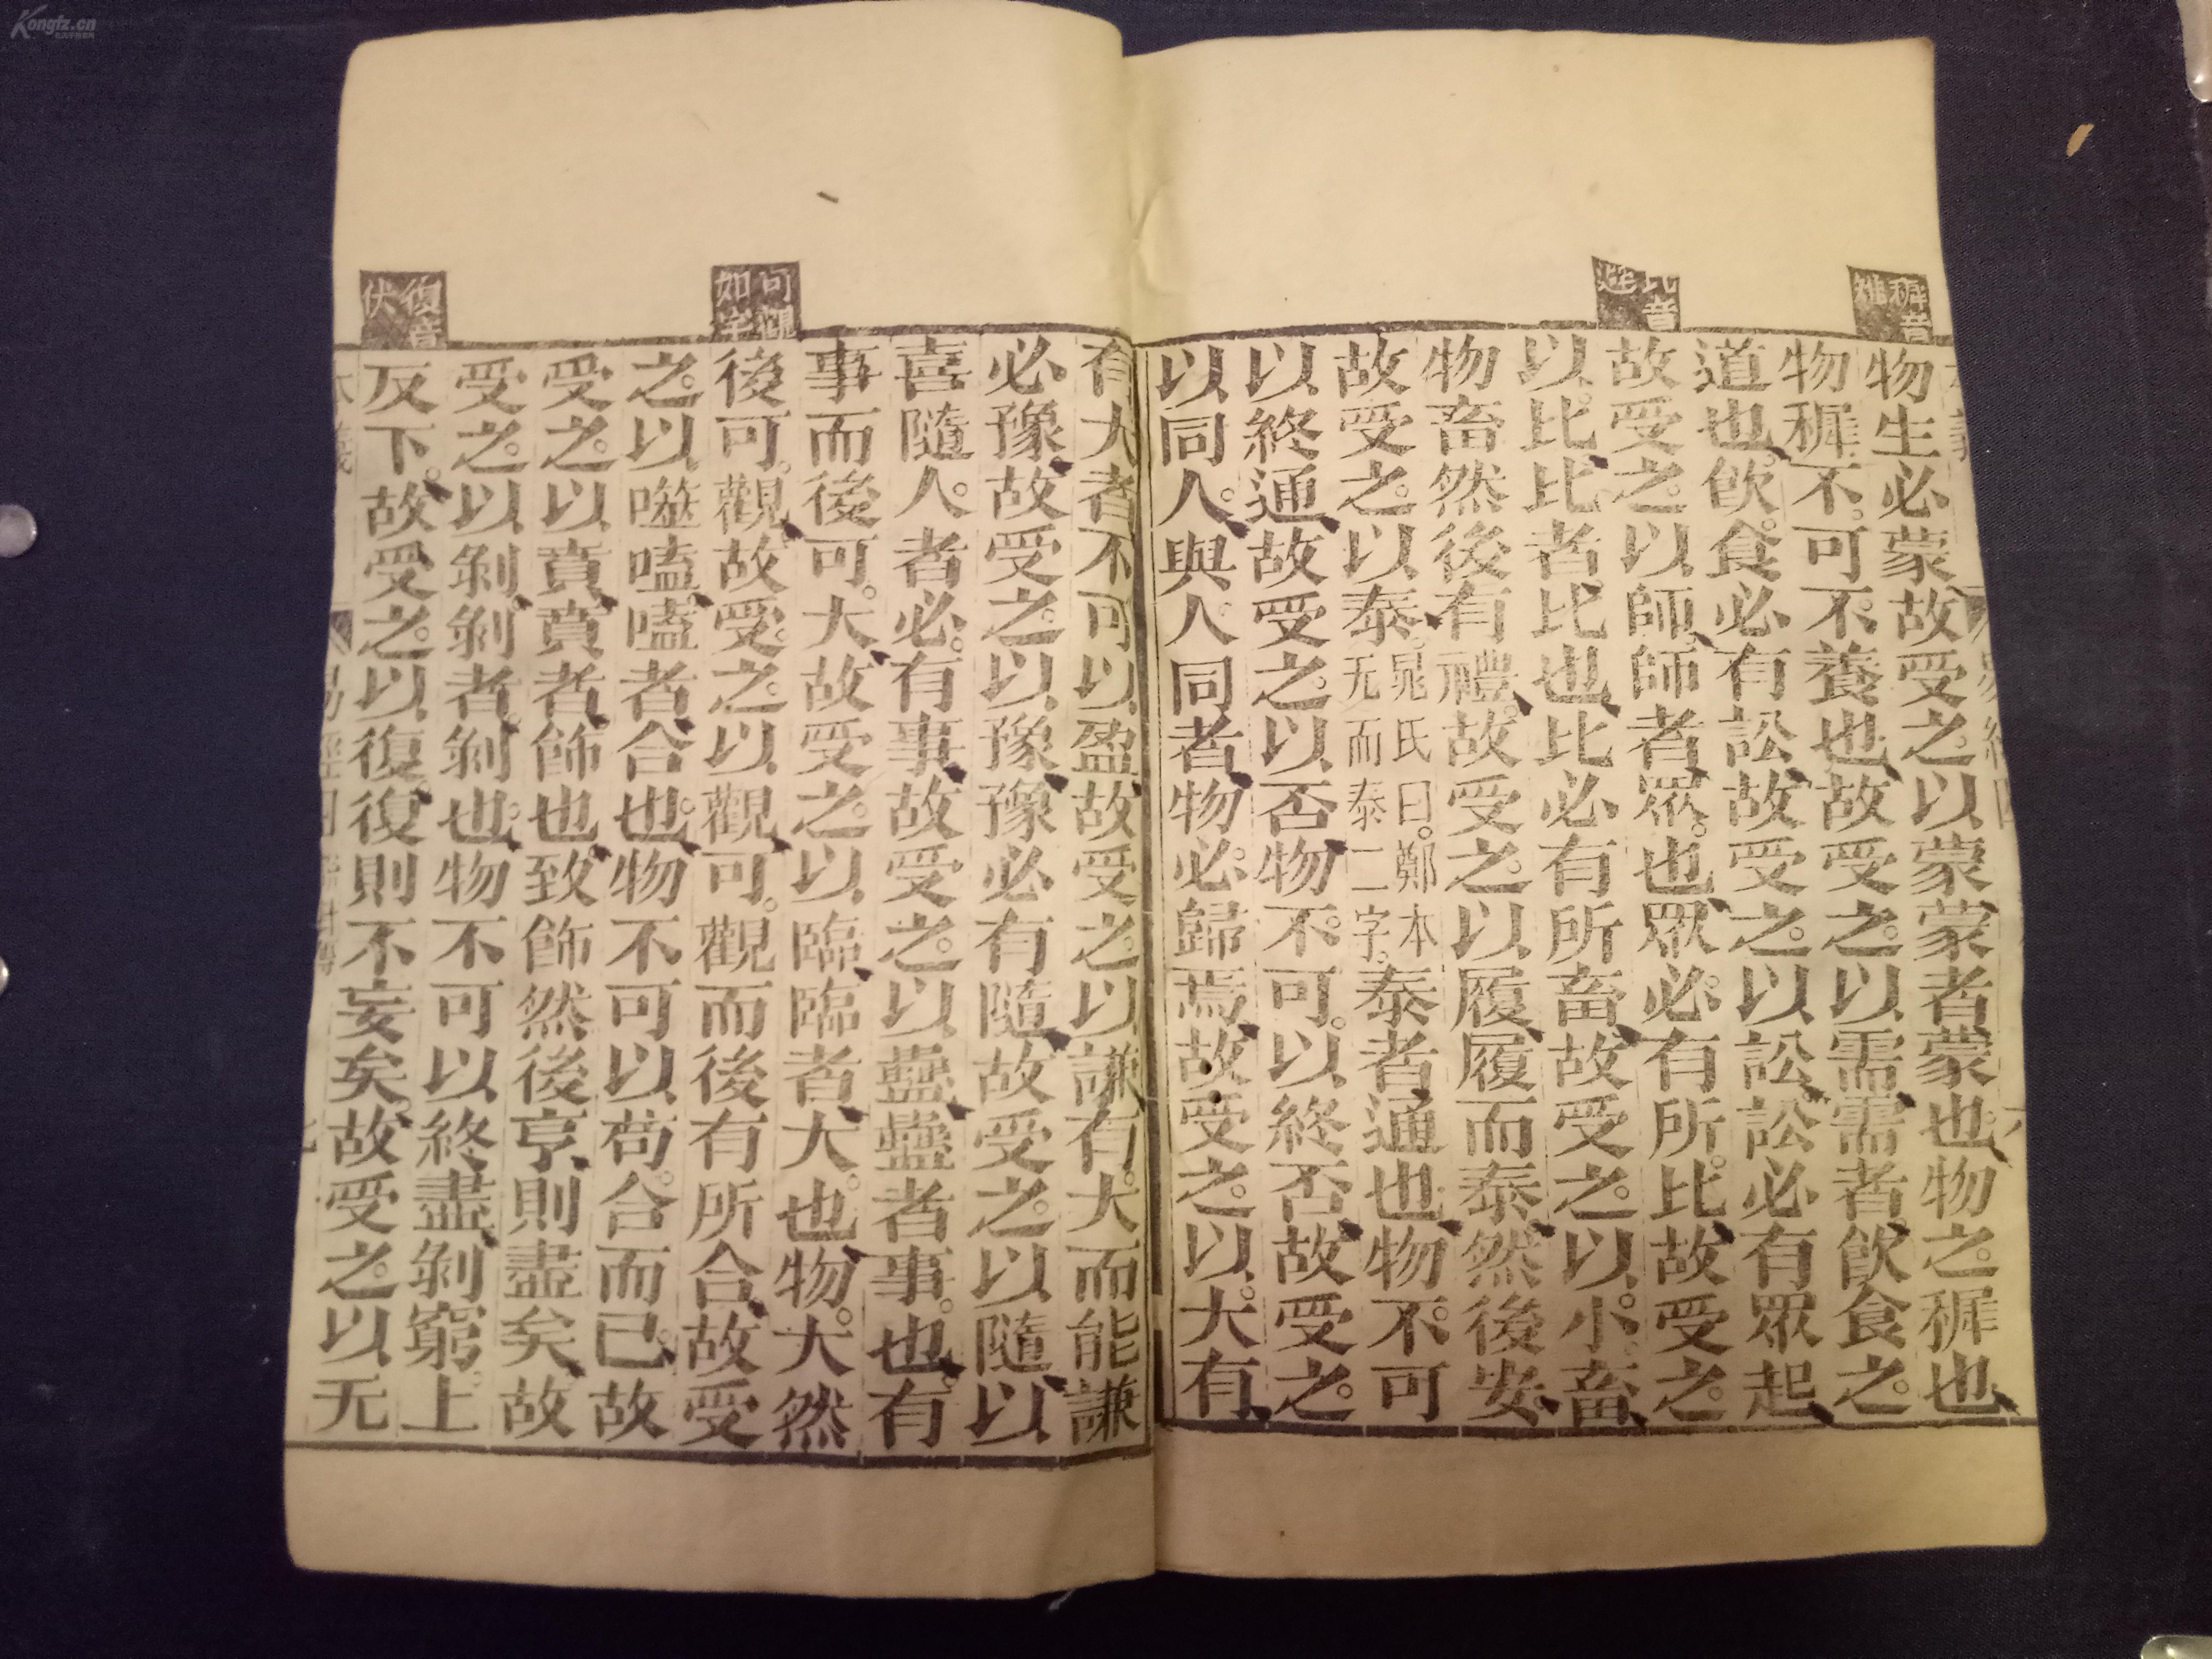 Kongfz.cn
稺音
稚
比音
物生必蒙故受之以蒙蒙者蒙也物之稺也
物稺不可不養也故受之以需需者飲食之
道也飲食必有訟故受之以訟訟必有眾起
故受之以師師者眾也眾必有所比故受之
以比比者比也比必有所畜故受之以小畜
物畜然後有禮故受之以履履而泰然後安
故受之以泰晁氏曰鄭本无而泰二字泰者通也物不可
以終通故受之以否物不可以終否故受之
以同人與人同者物必歸焉故受之以大有
可觀
如字
復音
伏
有大者不可以盈故受之以謙有大而能謙
必豫故受之以豫豫必有隨故受之以隨以
喜隨人者必有事故受之以蠱蠱者事也有
事而後可大故受之以臨臨者大也物大然
後可觀故受之以觀可觀而後有所合故受
之以噬嗑嗑者合也物不可以苟合而已故
受之以賁賁者飾也致飾然後亨則盡矣故
受之以剝剝者剝也物不可以終盡剝窮上
反下故受之以復復則不妄矣故受之以无